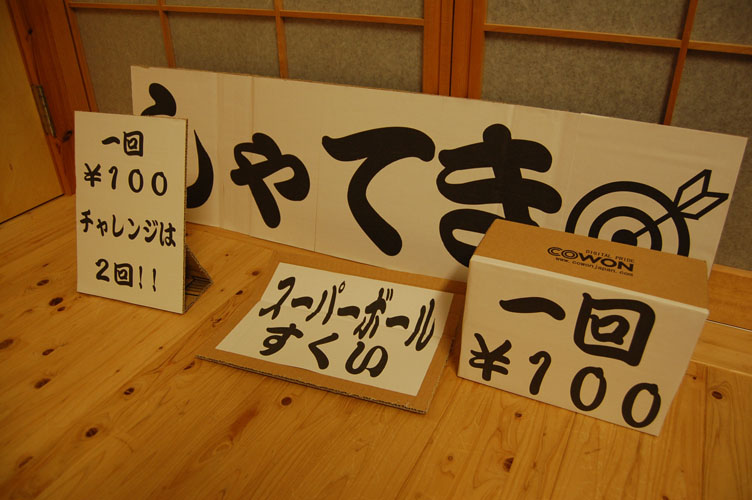 しゃてき
一回
¥100
チャレンジは
2回!!
スーパーボール
すくい
DIGITAL PRIDE
COWON
www.cowonjapan.com
一回
¥100